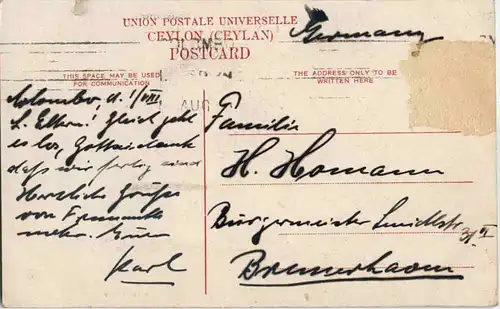 UNION POSTALE UNIVERSELLE
CEYLON (CEYLAN)
POSTCARD
Germany
THIS SPACE MAY BE USED
FOR COMMUNICATION
THE ADDRESS ONLY TO BE
WRITTEN HERE
AUG
Colombo, d. 1/VIII
L. Eltern! Gleich geht
es los, Gottseidank
daß wir fertig sind
Herzliche Grüße
von
mehr. Euer
Karl
Familie
H. Homann
Bürgermeister Smidtstr
Bremerhaven